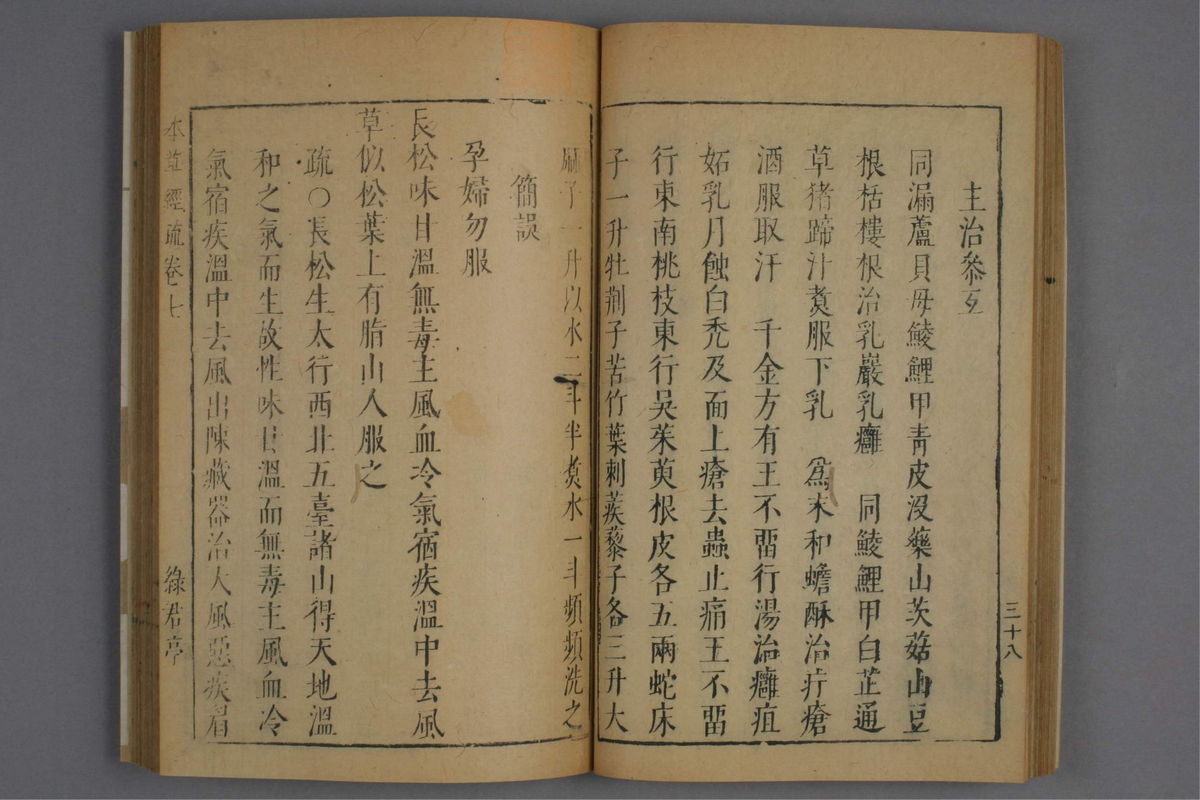 三十八
主治參互
同漏蘆貝母鯪鯉甲青皮沒藥山茨菇山豆
根栝樓根治乳巖乳癰　同鯪鯉甲白芷通
草猪蹄汁煑服下乳　爲末和蟾酥治疔瘡
酒服取汗　千金方有王不畱行湯治癰疽
妬乳月蝕白禿及面上瘡去蟲止痛王不畱
行東南桃枝東行吳茱萸根皮各五兩蛇床
子一升牡荆子苦竹葉刺蒺藜子各三升大
麻子一升以水二斗半煑水一斗頻頻洗之
簡誤
孕婦勿服
長松味甘溫無毒主風血冷氣宿疾溫中去風
草似松葉上有脂山人服之
疏〇長松生太行西北五臺諸山得天地溫
和之氣而生故性味甘溫而無毒主風血冷
氣宿疾溫中去風出陳藏器治大風惡疾眉
本草經疏卷七
綠君亭